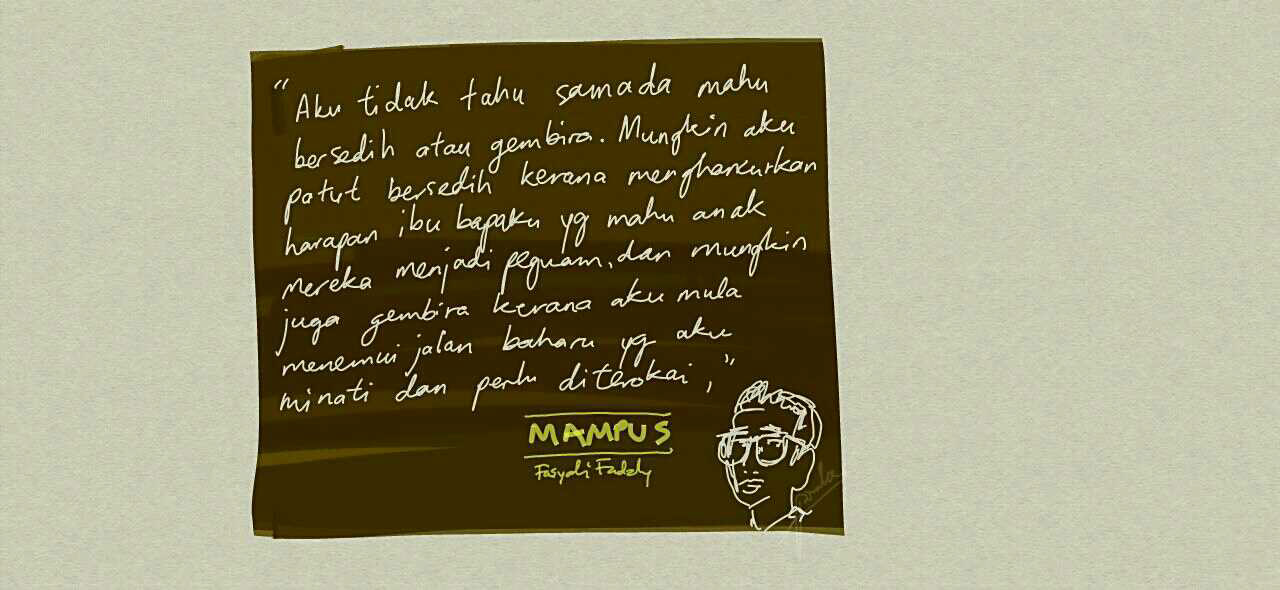 "Aku tidak tahu samada mahu
bersedih atau gembira. Mungkin aku
patut bersedih kerana menghancurkan
harapan ibu bapaku yg mahu anak
mereka menjadi peguam, dan mungkin
juga gembira kerana aku mula
menemui jalan baharu yg aku
minati dan perlu diterokai,"
MAMPUS
Fasyali Fadzly